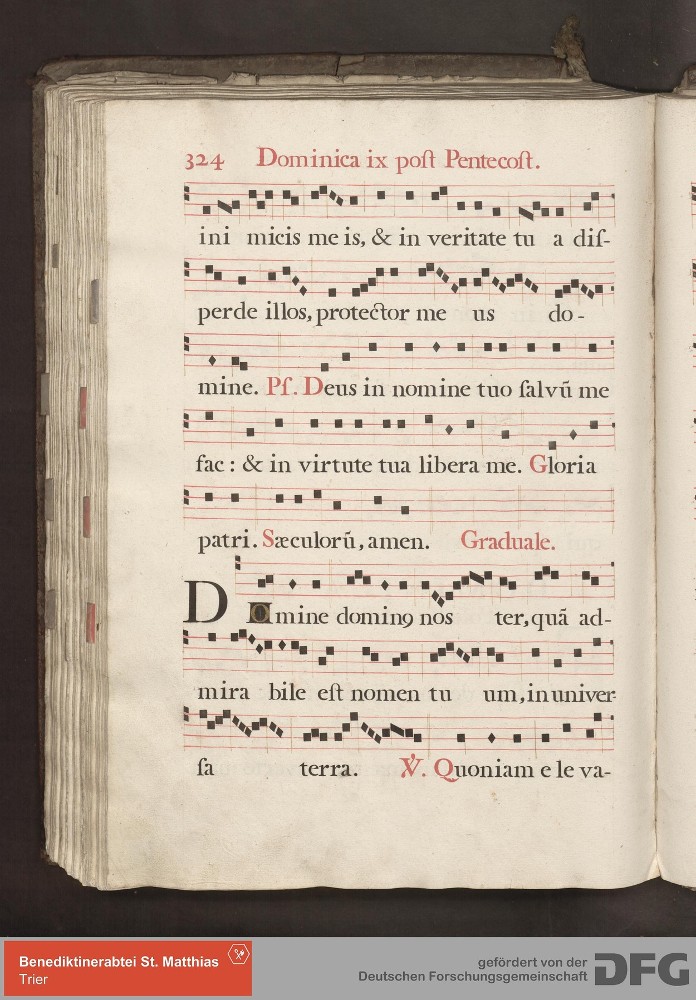 324 Dominica ix poſt Pentecoſt.
ini micis me is, & in veritate tu a diſ-
perde illos, protector me us do -
mine. Pſ. Deus in nomine tuo ſalvū me
fac : & in virtute tua libera me. Gloria
patri. Sæculorū, amen. Graduale.
D Omine dominꝯ nos ter, quā ad-
mira bile eſt nomen tu um, in univer-
ſa terra. ℣. Quoniam e le va-
Benediktinerabtei St. Matthias
Trier
gefördert von der
Deutschen Forschungsgemeinschaft
DFG